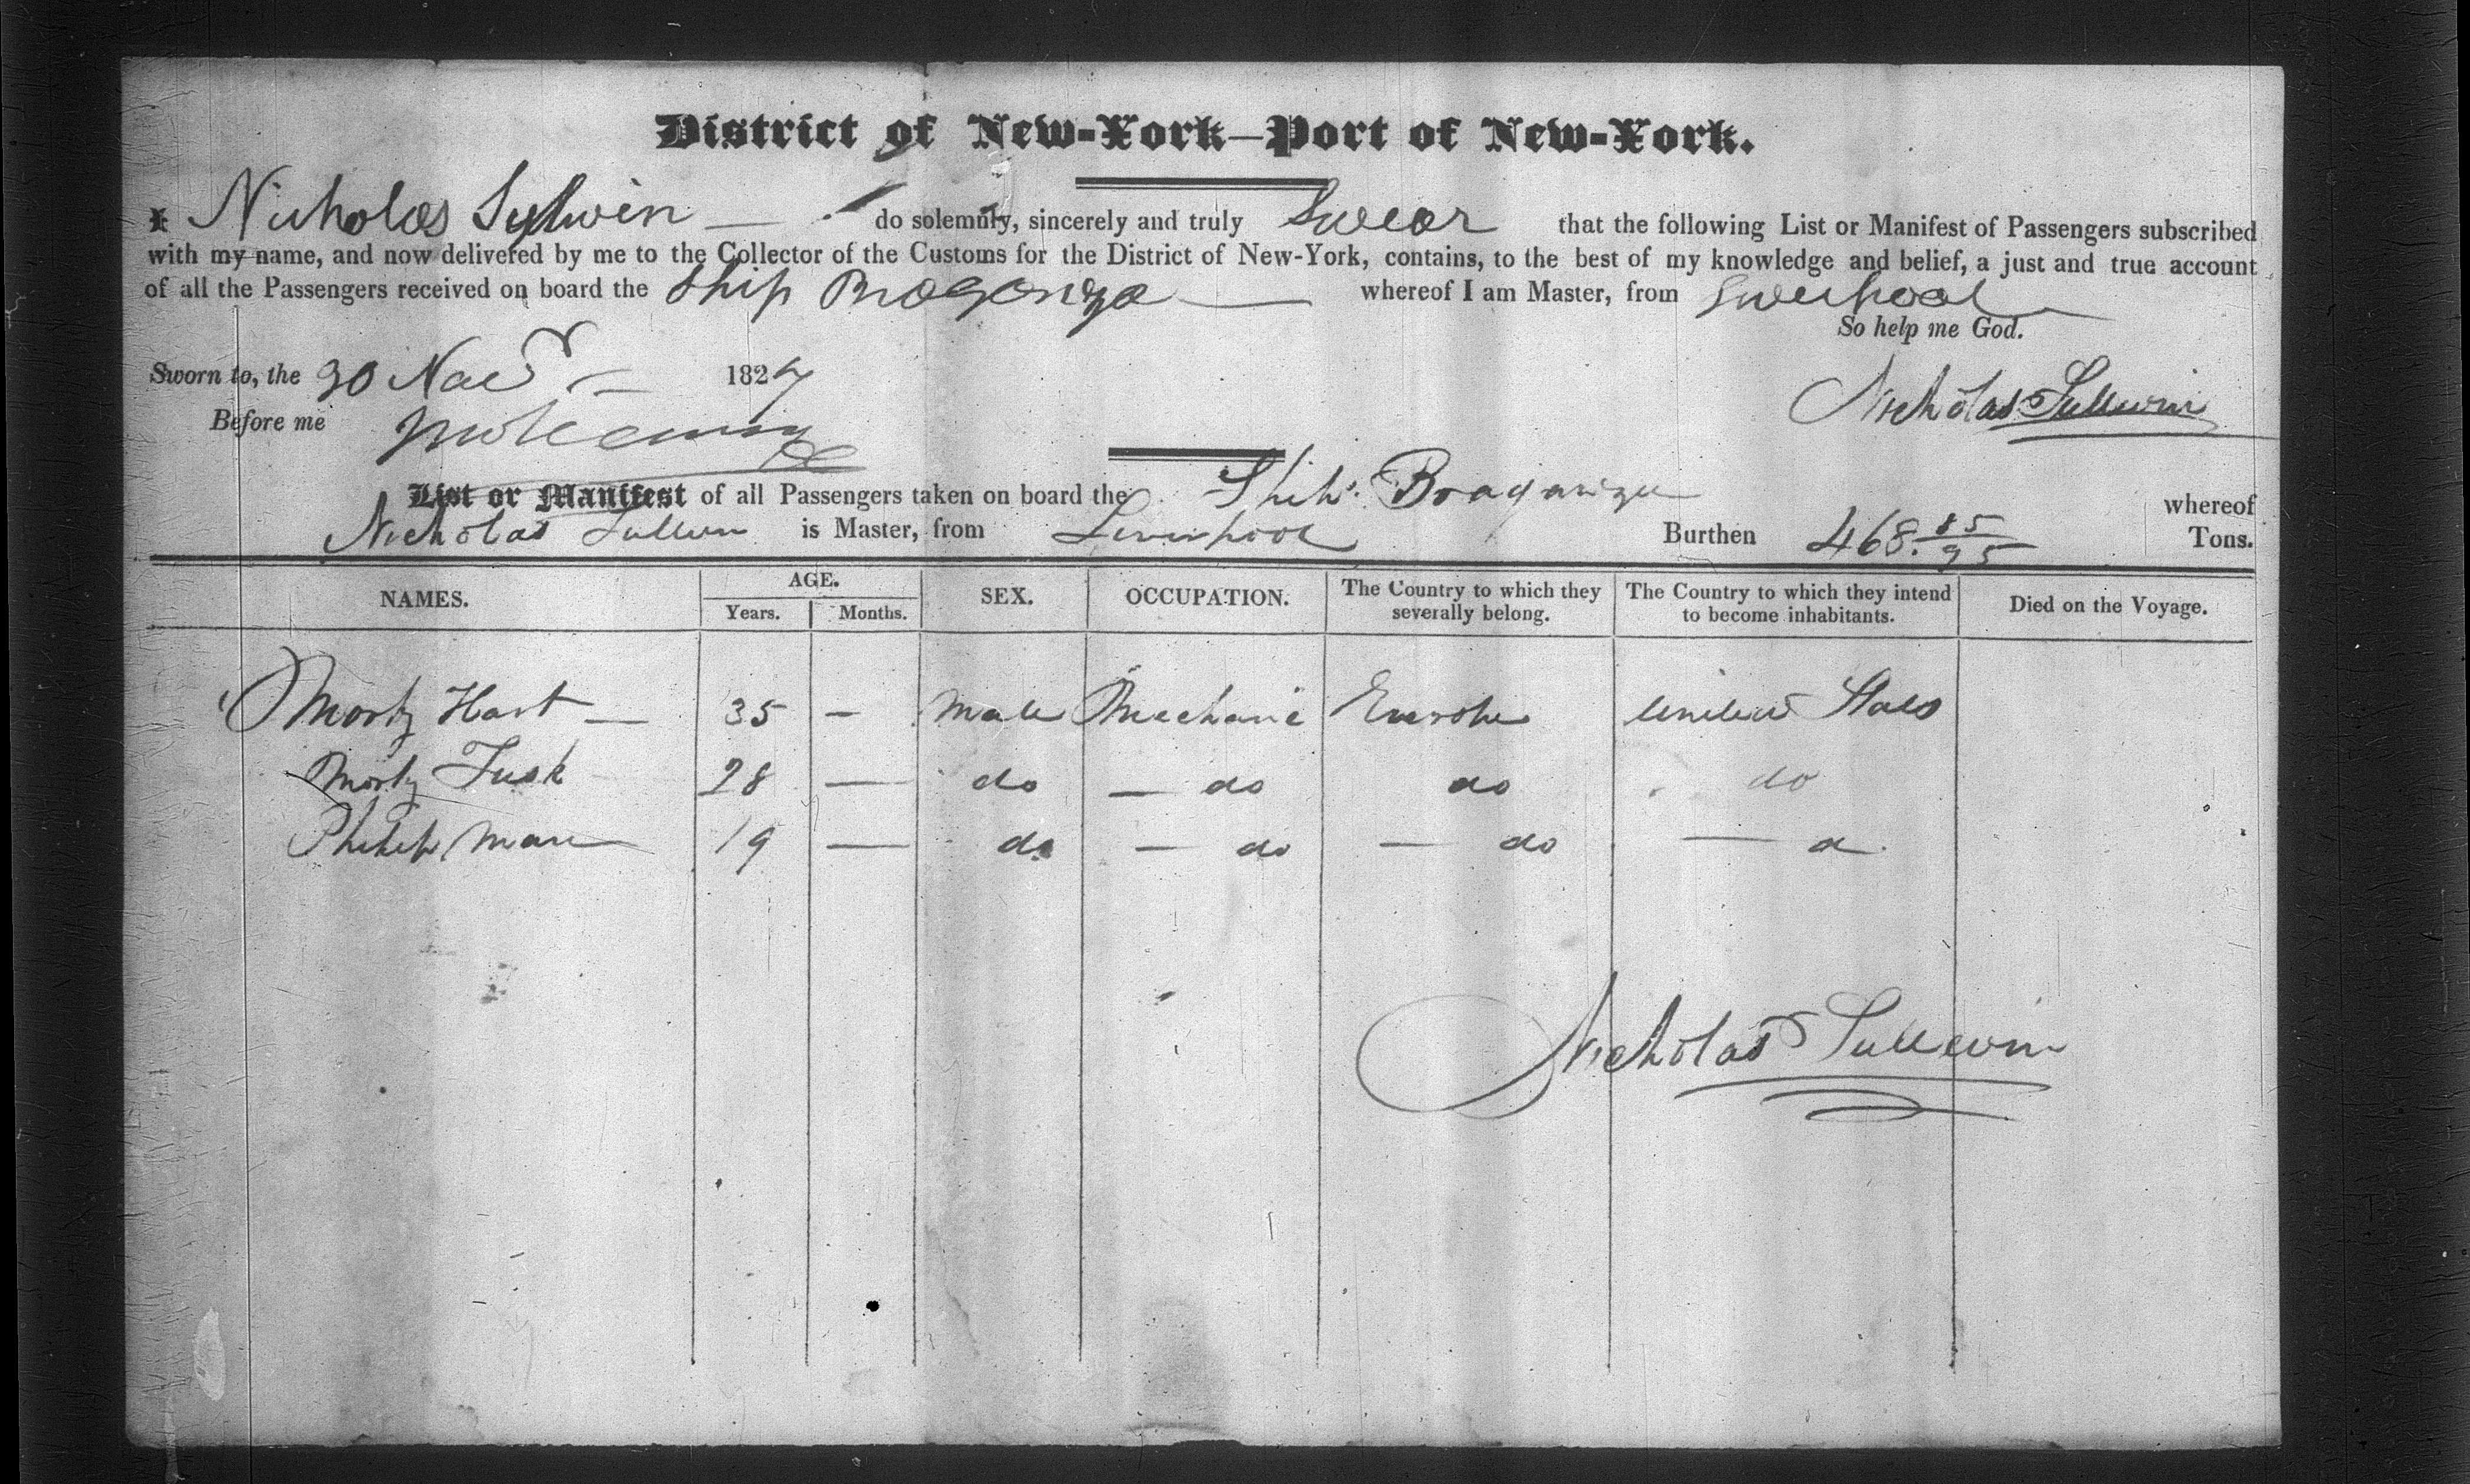 District of New-York—Port of New-York.
I Nicholas Sylwin — do solemnly, sincerely and truly Swear that the following List or Manifest of Passengers subscribed
with my name, and now delivered by me to the Collector of the Customs for the District of New-York, contains, to the best of my knowledge and belief, a just and true account
of all the Passengers received on board the Ship Braganza — whereof I am Master, from Liverpool
So help me God.
Sworn to, the 30 Nov 1827
Nicholas
Before me
List or Manifest of all Passengers taken on board the Ship Braganza whereof
Nicholas is Master, from Liverpool Burthen 468. 85/95 Tons.
NAMES. AGE. SEX. OCCUPATION. The Country to which they severally belong. The Country to which they intend to become inhabitants. Died on the Voyage.
Years. Months.
Hart — 35 — Male Mechanic Europe United States
28 — do — do do do
Philip 19 — do — do — do — d
Nicholas